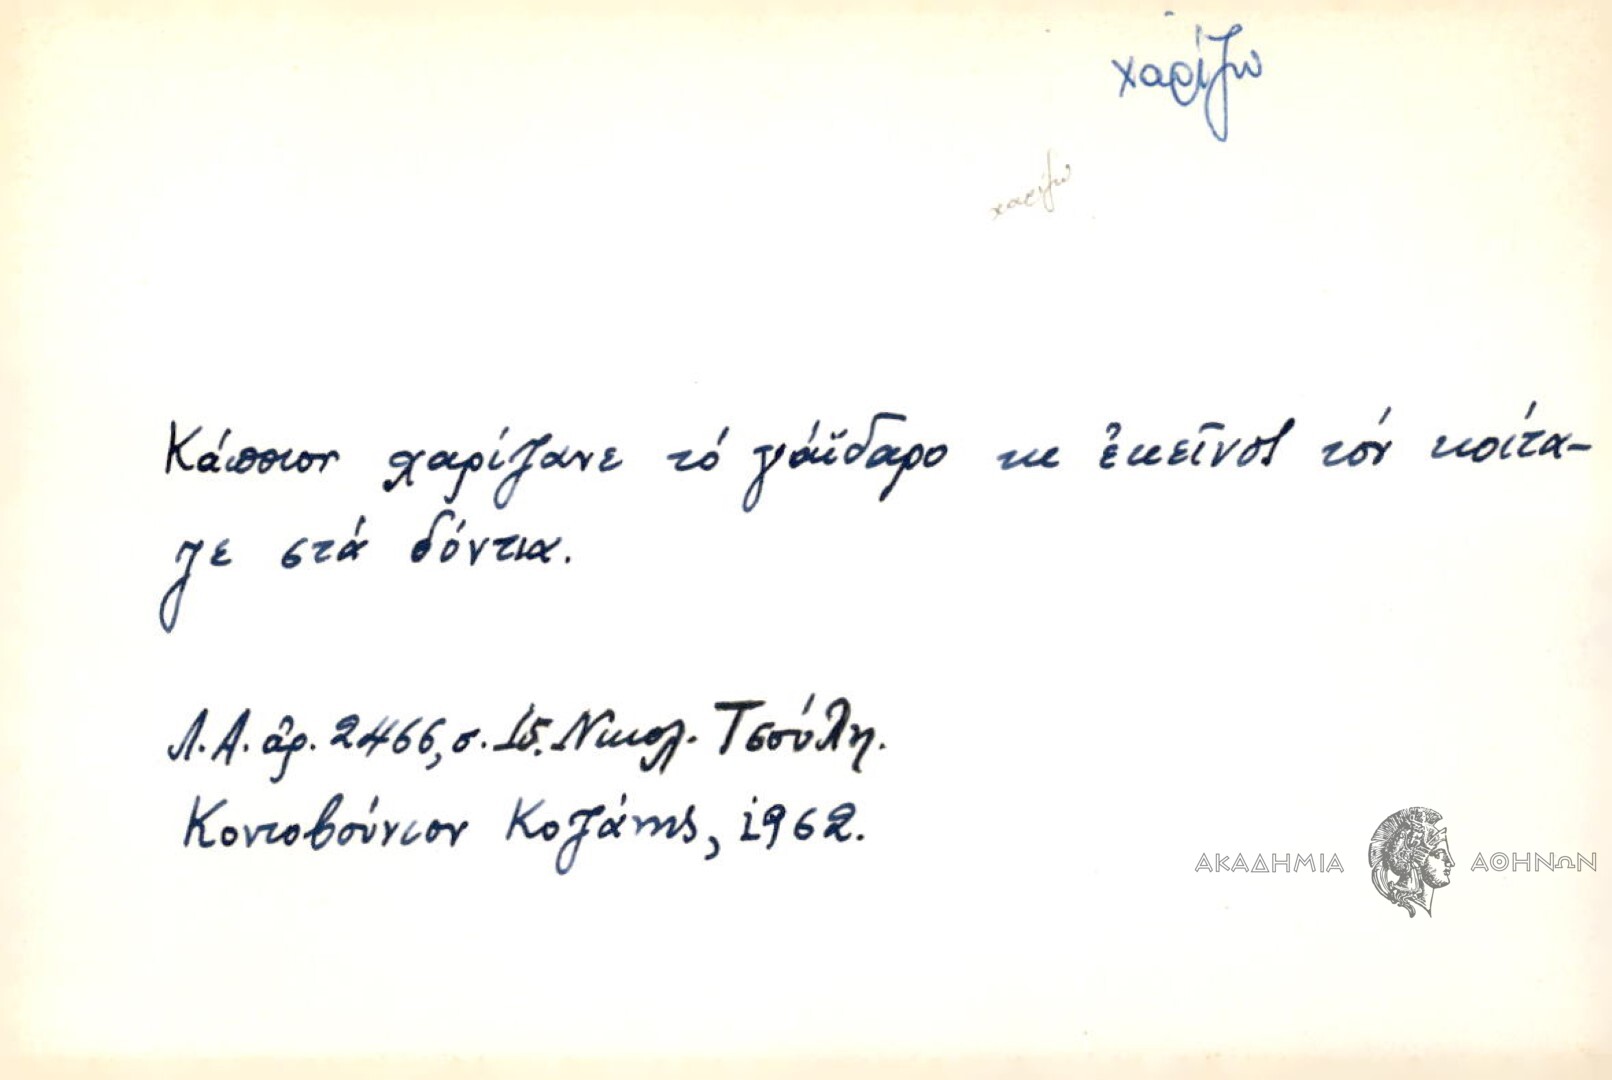 χαρίζω
χαρίζω
Κάποιον χαρίζανε τό γάϊδαρο κι ἐκεῖνος τόν κοίτα-
ζε στά δόντια.
Λ.Α. ἀρ. 2466, σ. 15. Νικολ. Τσούλη.
Κοντοβούνιον Κοζάνης, 1962.
ΑΚΑΔΗΜΙΑ ΑΘΗΝΩΝ